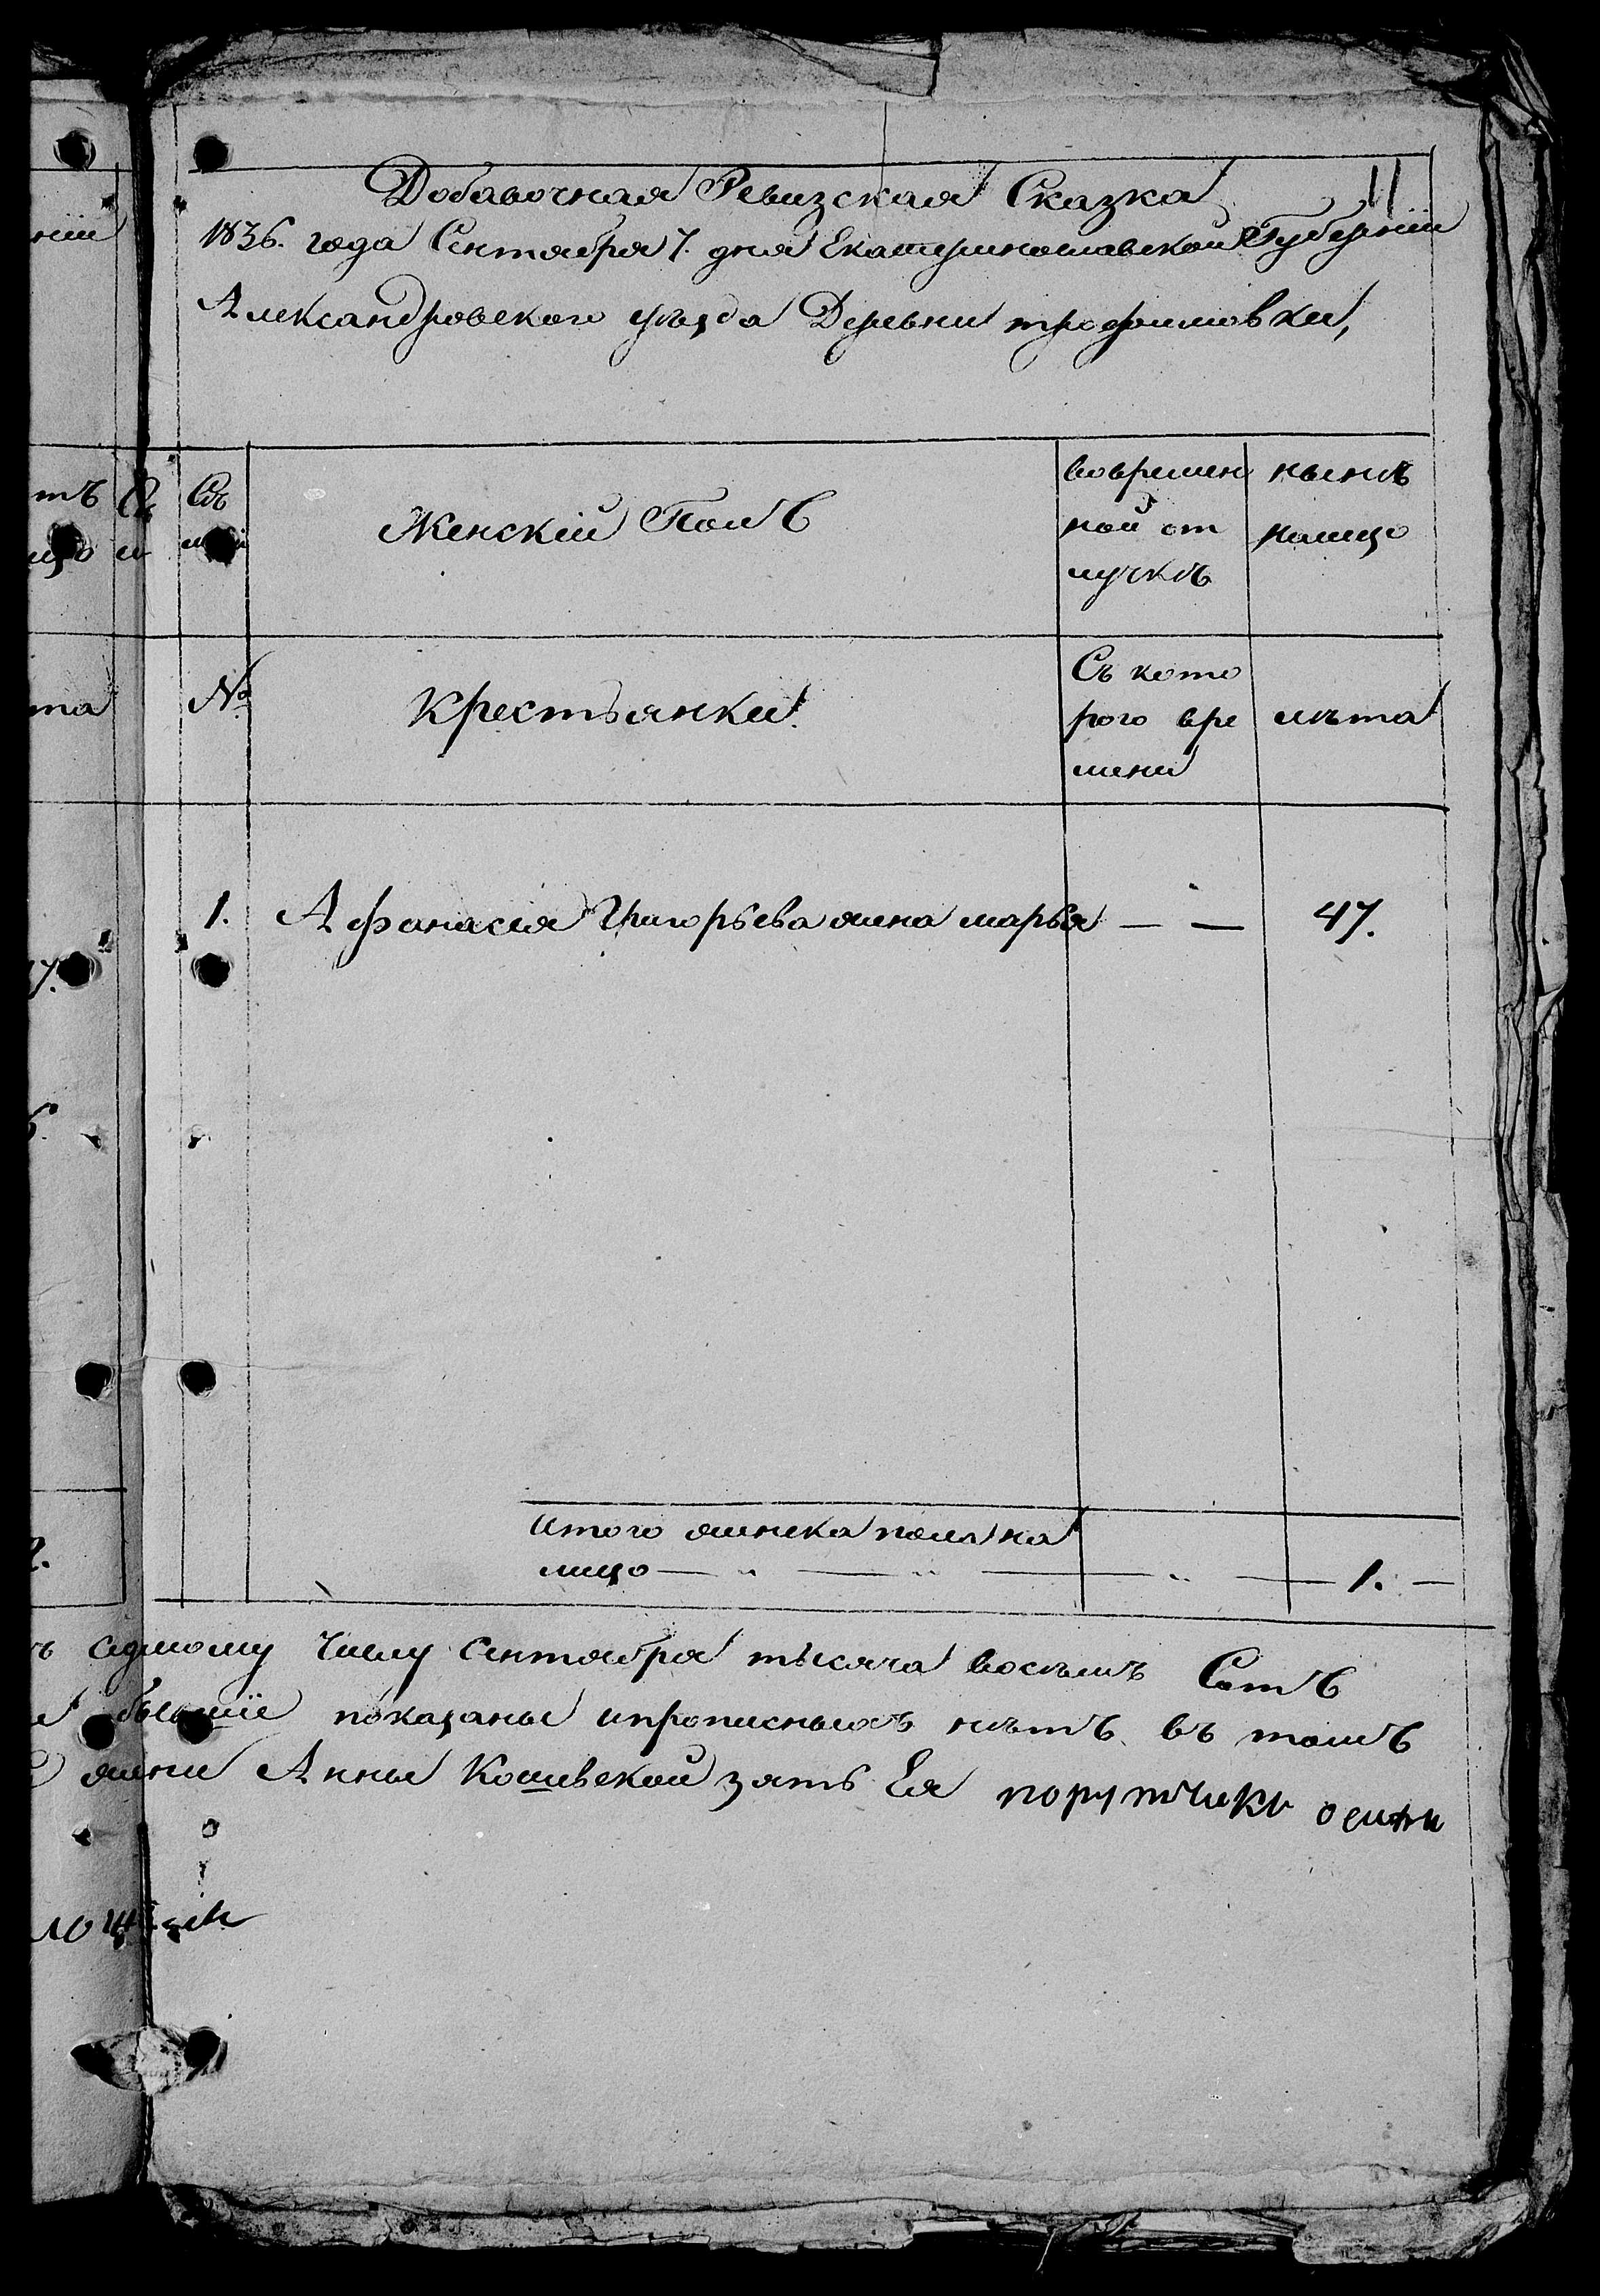 11
Добавочная Ревизская Сказка
1836. года Сентября 7. дня Екатеринославской Губерніи
Александровского уѣзда Деревни трофимовки,
Женскій Полъ
вовремен
ной от
лучкѣ
нынѣ
налицо
№
Крестьянки.
Съ кото
рого вре
мени
лѣта
1. Афанасія Григорьева жена марья — — 47.
Итого женска пола на
лицо — „ — „ — „ — 1. —
седмому числу Сентября тысяча восемь Сотъ
бывшіе показаны ипрописныхъ нѣтъ въ томъ
жены Анны Кошевской зять Ея поручикъ